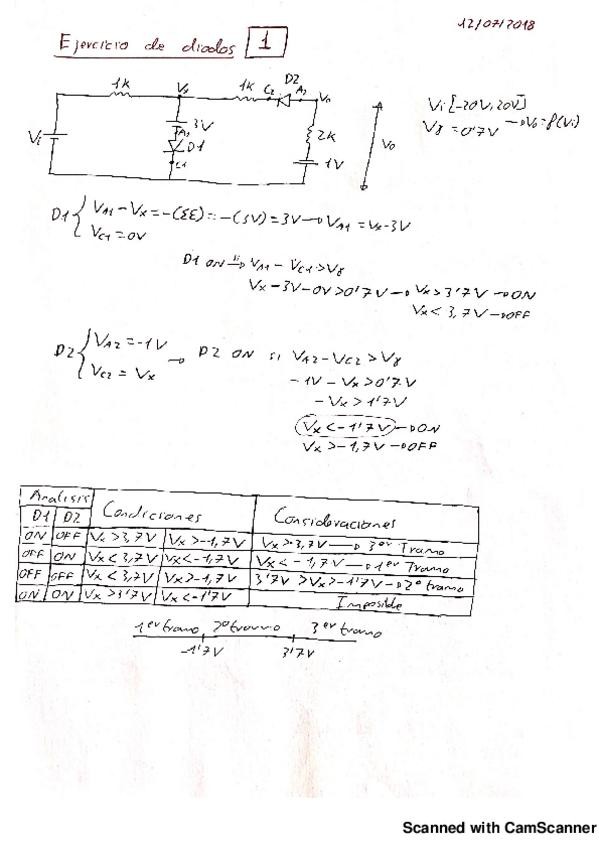 12/07/2018
Ejercicio de diodos 1
1k Vx 1k C2 D2 A2 Vo
Vi 3V A1 D1 C1 2k 1V Vo
Vi [-20V, 20V]
Vγ = 0'7V → Vo = f(Vi)
D1 { VA1 - Vx = -(ΣE) = -(3V) = 3V → VA1 = Vx - 3V
VC1 = 0V
D1 ON si VA1 - VC1 > Vγ
Vx - 3V - 0V > 0'7V → Vx > 3'7V → ON
Vx < 3,7V → OFF
D2 { VA2 = -1V
VC2 = Vx → D2 ON si VA2 - VC2 > Vγ
-1V - Vx > 0'7V
-Vx > 1'7V
Vx < -1'7V → ON
Vx > -1,7V → OFF
Analisis
D1 D2 Condiciones Consideraciones
ON OFF Vx > 3,7V Vx > -1,7V Vx > 3,7V → 3er Tramo
OFF ON Vx < 3,7V Vx < -1,7V Vx < -1,7V → 1er Tramo
OFF OFF Vx < 3,7V Vx > -1,7V 3'7V > Vx > -1'7V → 2º tramo
ON ON Vx > 3'7V Vx < -1'7V Imposible
1er tramo 2º tramo 3er tramo
-1'7V 3'7V
Scanned with CamScanner